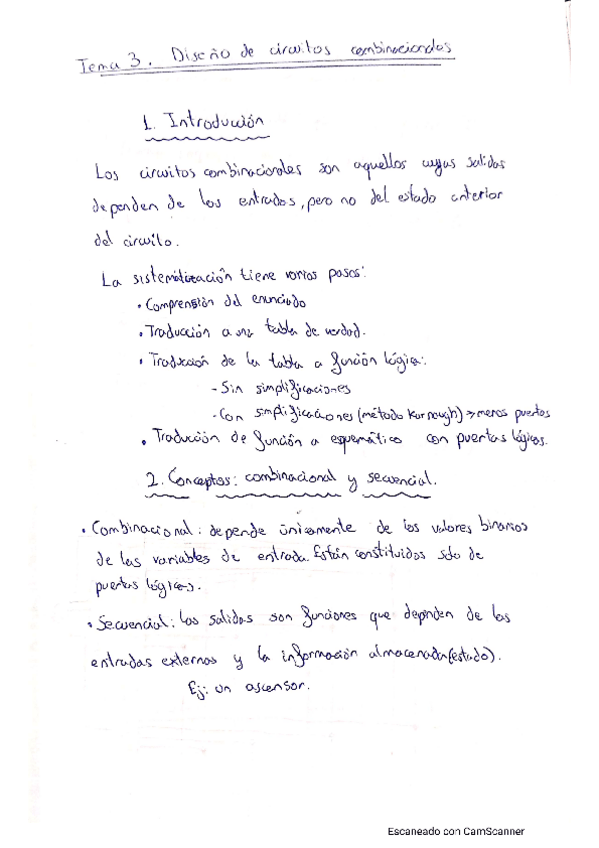 Tema 3. Diseño de circuitos combinacionales
1. Introducción
Los circuitos combinacionales son aquellos cuyas salidas
dependen de las entradas, pero no del estado anterior
del circuito.
La sistematización tiene varios pasos:
• Comprensión del enunciado
• Traducción a una tabla de verdad.
• Traducción de la tabla a función lógica:
- Sin simplificaciones
- Con simplificaciones (método Karnough) → menos puertas
• Traducción de función a esquemático con puertas lógicas.
2. Conceptos: combinacional y secuencial.
• Combinacional: depende únicamente de los valores binarios
de las variables de entrada. Están constituidos solo de
puertas lógicas.
• Secuencial: las salidas son funciones que dependen de las
entradas externas y la información almacenada (estado).
Ej: un ascensor.
Escaneado con CamScanner